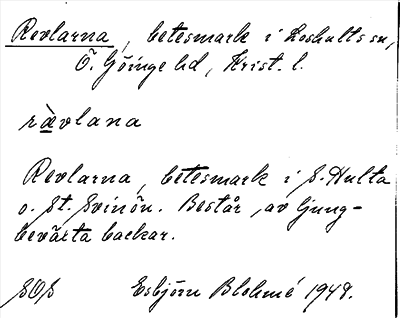 Revlarna, betesmark i Loshults sn,
Ö. Göinge hd, Krist. l.
rävlana
Revlarna, betesmark i S. Hulta
o. St. Svinön. Består av ljung-
bevärta backar.
SOS Esbjörn Blohmé 1948.